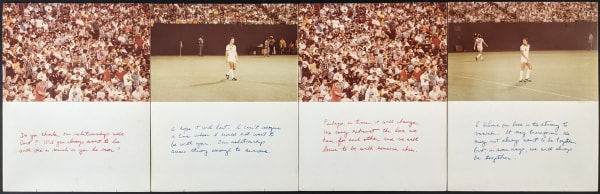 Do you think our relationship will
last? Will you always want to be
with me as much as you do now?
I hope it will last. I can't imagine
a time when I would not want to
be with you. Our relationship
seems strong enough to survive.
Perhaps in time it will change.
We may exhaust the love we
have for each other and we will
have to be with someone else.
I believe our love is too strong to
vanish. It may transform. We
may not always want to be together
but in some ways, we will always
be together.